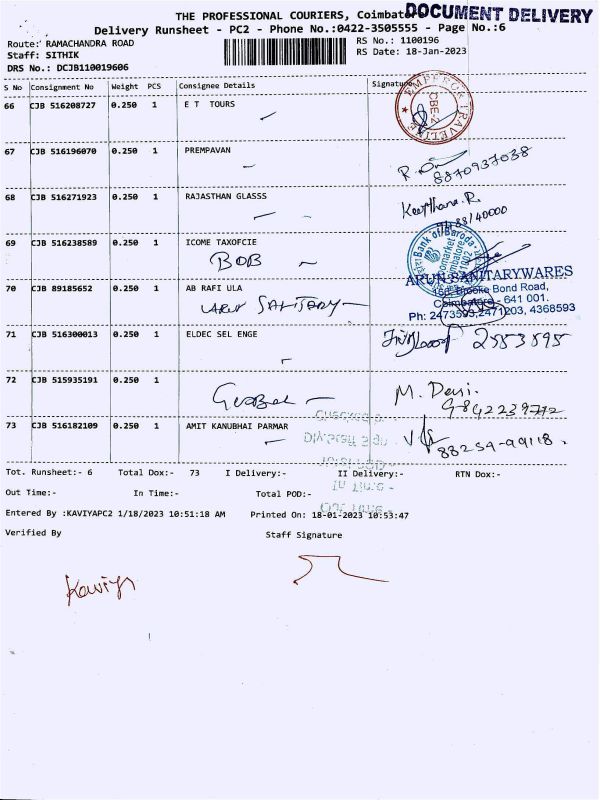 THE PROFESSIONAL COURIERS, Coimbato
DOCUMENT DELIVERY
Delivery Runsheet - PC2 - Phone No.:0422-3505555 - Page No.:6
Route: RAMACHANDRA ROAD
RS No.: 1100196
Staff: SITHIK
RS Date: 18-Jan-2023
DRS No.: DCJB110019606
S No Consignment No Weight PCS Consignee Details Signature
66 CJB 516208727 0.250 1 E T TOURS
67 CJB 516196070 0.250 1 PREMPAVAN
8870937038
68 CJB 516271923 0.250 1 RAJASTHAN GLASSS
Keerthana.R.
69 CJB 516238589 0.250 1 ICOME TAXOFCIE
BOB
Bank of Baroda
70 CJB 89185652 0.250 1 AB RAFI ULA
ARUN SANITARYWARES
Bond Road,
Coimbatore - 641 001.
Ph: 2473593,2471203, 4368593
71 CJB 516300013 0.250 1 ELDEC SEL ENGE
2553595
72 CJB 515935191 0.250 1
M. Devi.
9842239772
73 CJB 516182109 0.250 1 AMIT KANUBHAI PARMAR
88254-99118.
Tot. Runsheet:- 6 Total Dox:- 73 I Delivery:- II Delivery:- RTN Dox:-
Out Time:- In Time:- Total POD:-
Entered By :KAVIYAPC2 1/18/2023 10:51:18 AM Printed On: 18-01-2023 10:53:47
Verified By Staff Signature
Kaviya